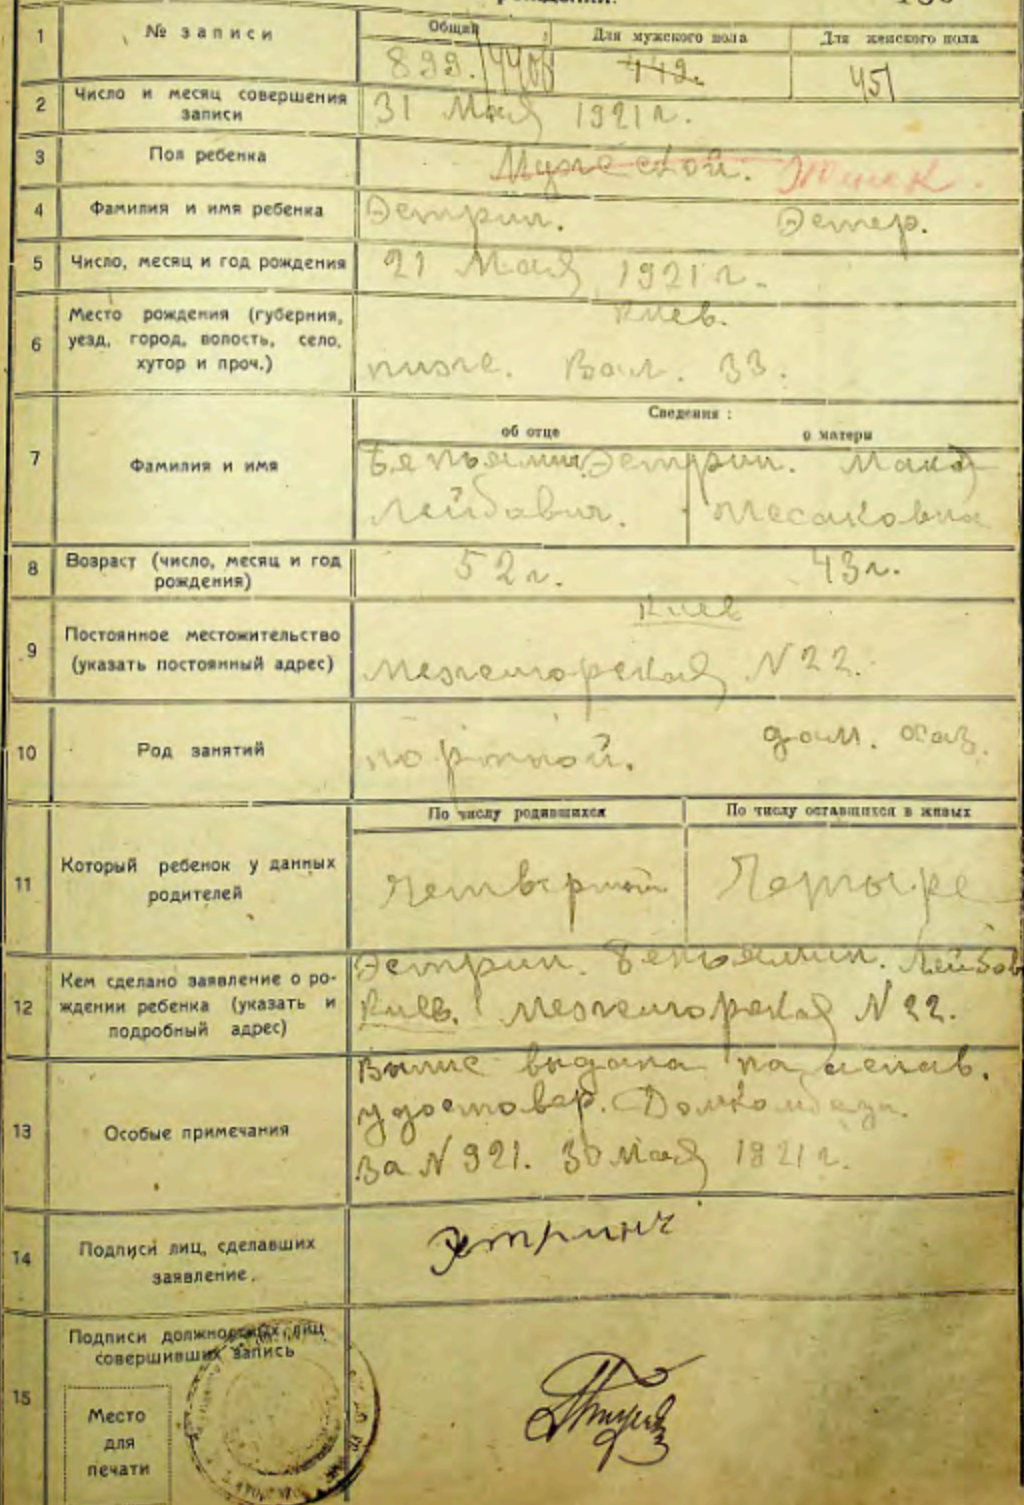 1 № записи
Общий Для мужского пола Для женского пола
899. 442. 451
2 Число и месяц совершения
записи
31 Мая 1921 г.
3 Пол ребенка
Мужеской. Женск.
4 Фамилия и имя ребенка
Эстрин. Эстер.
5 Число, месяц и год рождения
21 Мая 1921 г.
6 Место рождения (губерния,
уезд, город, волость, село,
хутор и проч.)
Киев.
ниже. Вал. 33.
7 Фамилия и имя
Сведения:
об отце о матери
Беньямин Эстрин.
Лейбович.
8 Возраст (число, месяц и год
рождения)
52 г. 43 г.
9 Постоянное местожительство
(указать постоянный адрес)
Киев
Межегорская N 22.
10 Род занятий
портной. дом. хоз.
11 Который ребенок у данных
родителей
По числу родившихся По числу оставшихся в живых
Четвертый Четыре
12 Кем сделано заявление о ро-
ждении ребенка (указать и
подробный адрес)
Эстрин. Беньямин. Лейбов
Киев. Межегорская N 22.
13 Особые примечания
Выпис выдана на
удостовер. Домкома
За N 921. 30 Мая 1921 г.
14 Подписи лиц, сделавших
заявление.
Эстринч
15 Подписи должностных лиц
совершивших запись
Место
для
печати